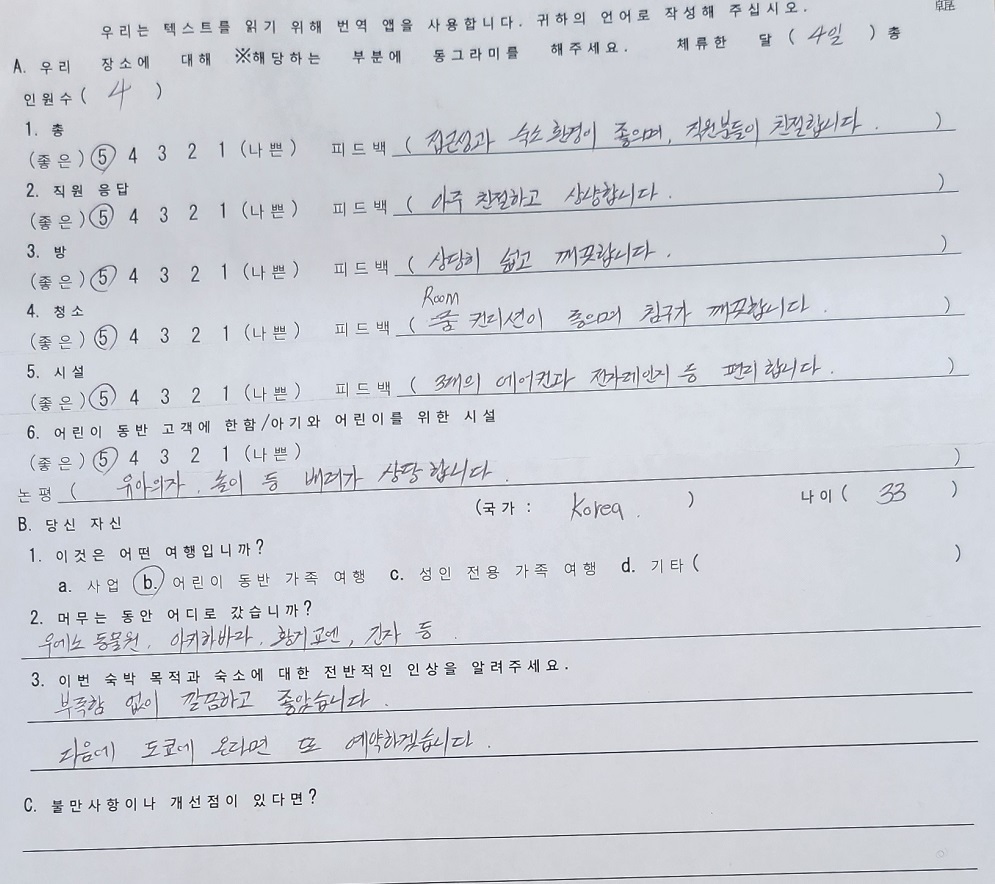 우리는 텍스트를 읽기 위해 번역 앱을 사용합니다. 귀하의 언어로 작성해 주십시오.
A. 우리 장소에 대해 ※해당하는 부분에 동그라미를 해주세요. 체류한 달 ( 4일 ) 총
인원수 ( 4 )
1. 총
(좋은) 5 4 3 2 1 (나쁜) 피드백 ( 접근성과 숙소 환경이 좋으며, 직원분들이 친절합니다. )
2. 직원 응답
(좋은) 5 4 3 2 1 (나쁜) 피드백 ( 아주 친절하고 상냥합니다. )
3. 방
(좋은) 5 4 3 2 1 (나쁜) 피드백 ( 상당히 넓고 깨끗합니다. )
4. 청소
Room
(좋은) 5 4 3 2 1 (나쁜) 피드백 ( 컨디션이 좋으며 침구가 깨끗합니다. )
5. 시설
(좋은) 5 4 3 2 1 (나쁜) 피드백 ( 3개의 에어컨과 전자레인지 등 편리합니다. )
6. 어린이 동반 고객에 한함/아기와 어린이를 위한 시설
(좋은) 5 4 3 2 1 (나쁜)
논평 ( 유아의자, 놀이 등 배려가 상당합니다. )
(국가: Korea. ) 나이 ( 33 )
B. 당신 자신
1. 이것은 어떤 여행입니까?
a. 사업 b. 어린이 동반 가족 여행 c. 성인 전용 가족 여행 d. 기타 ( )
2. 머무는 동안 어디로 갔습니까?
우에노 동물원, 아키하바라, 긴자 등.
3. 이번 숙박 목적과 숙소에 대한 전반적인 인상을 알려주세요.
부족함 없이 깔끔하고 좋았습니다.
다음에 도쿄에 온다면 또 예약하겠습니다.
C. 불만사항이나 개선점이 있다면?